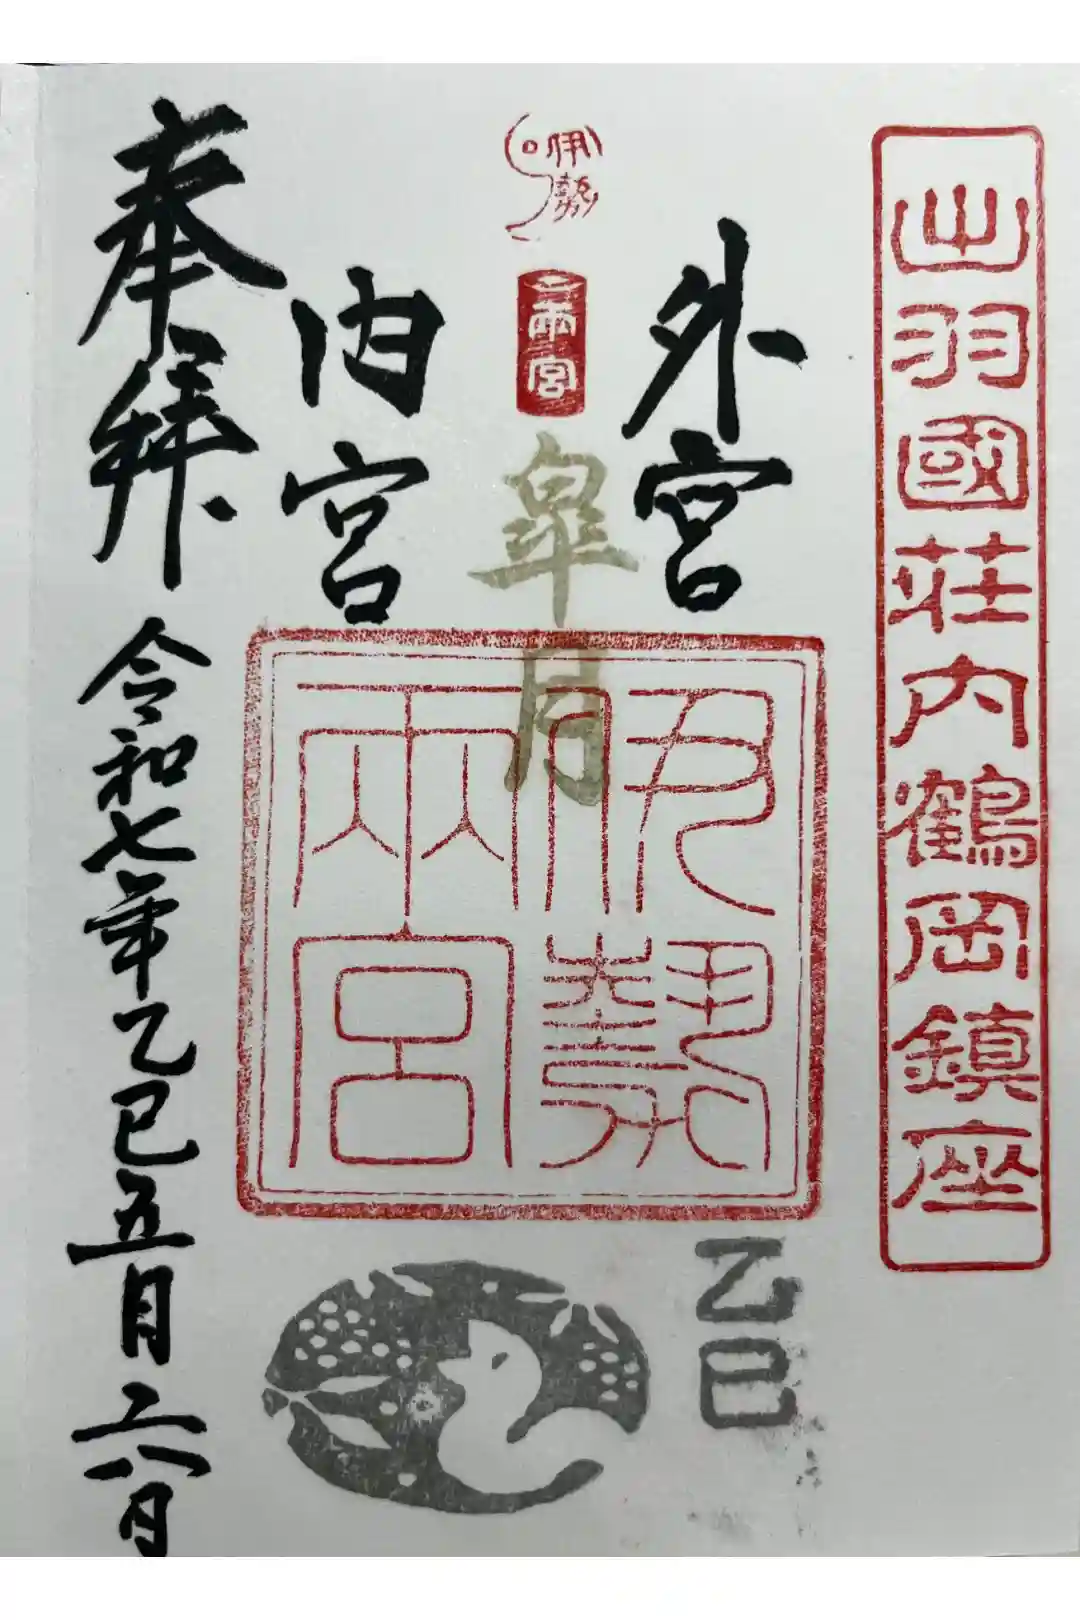 出羽國荘内鶴岡鎮座
外宮
伊勢
両宮
皐月
内宮
伊勢
兩宮
奉拝
令和七年乙巳五月二八日
乙巳